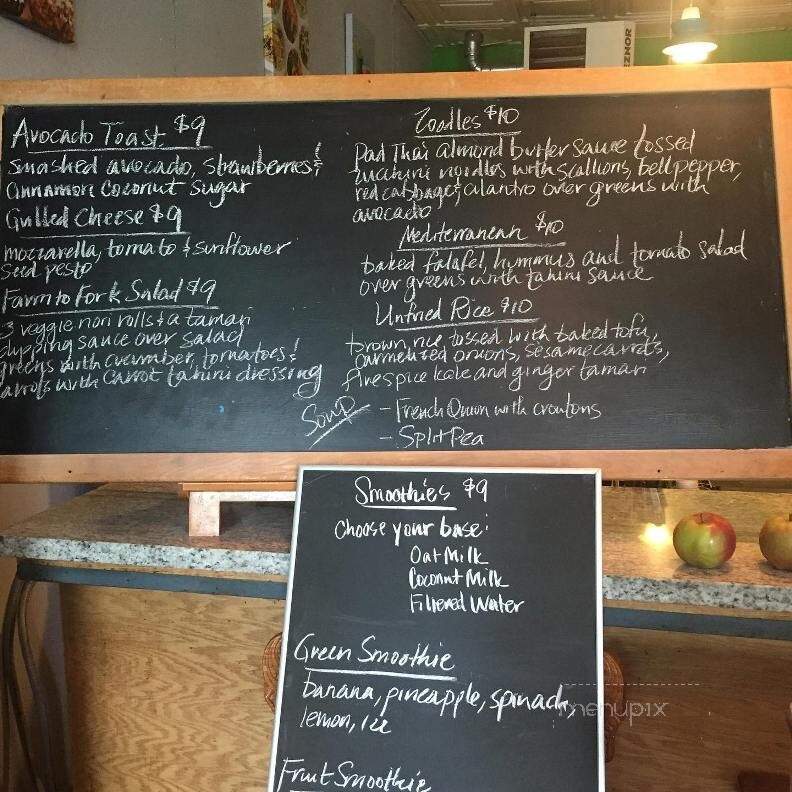 Avocado Toast $9
smashed avocado, strawberries &
cinnamon coconut sugar
Grilled Cheese $9
mozzarella, tomato & sunflower
seed pesto
Farm to Fork Salad $9
3 veggie nori rolls & a tamari
dipping sauce over salad
greens with cucumber, tomatoes &
carrots with carrot tahini dressing
Zoodles $10
Pad Thai almond butter sauce tossed
zucchini noodles with scallions, bell pepper,
red cabbage, cilantro over greens with
avocado
Mediterranean $10
baked falafel, hummus and tomato salad
over greens with tahini sauce
Unfried Rice $10
brown rice tossed with baked tofu,
carmelized onions, sesame carrots,
fivespice kale and ginger tamari
Soup - French Onion with croutons
- Split Pea
Smoothies $9
Choose your base:
Oat Milk
Coconut Milk
Filtered Water
Green Smoothie
banana, pineapple, spinach,
lemon, ice
Fruit Smoothie
menupix